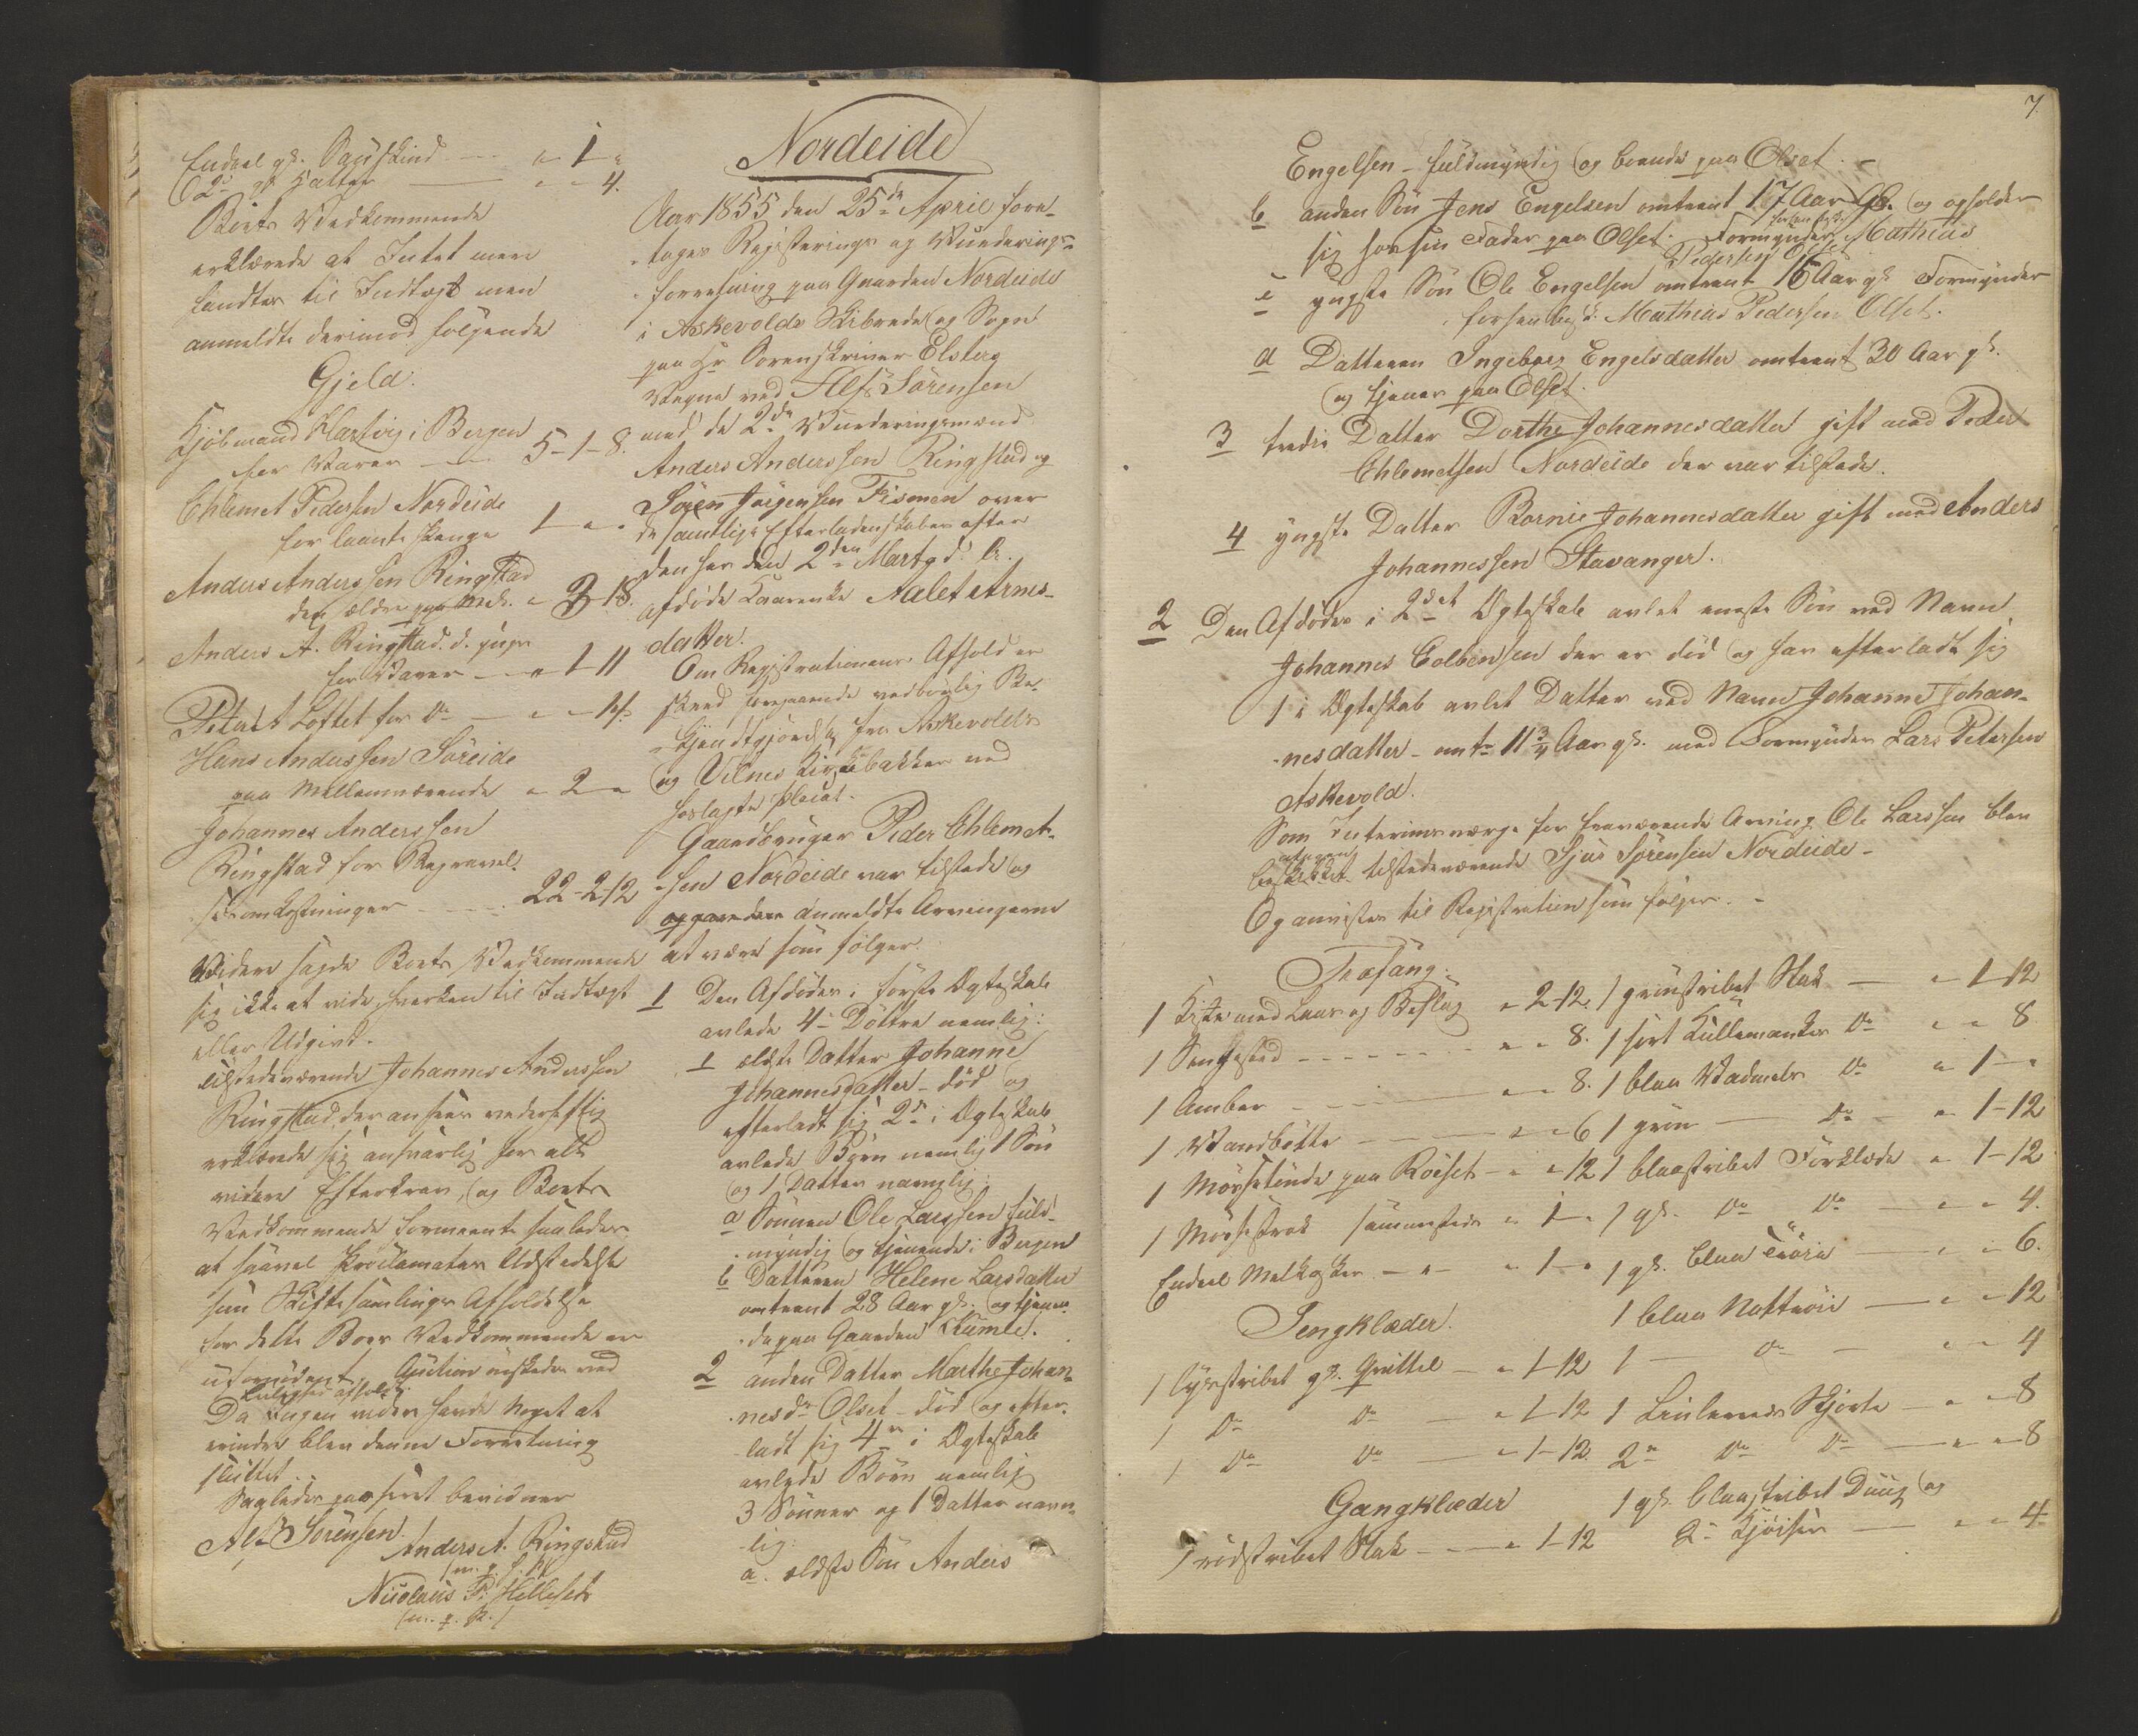 Endeel gl. Sauskind — " 1 "
2de gl. Hatter — " " 4.
Boets Vedkommende
erklærede at Intet mere
fandtes til Indtægt men
anmeldte derimod følgende
Gjeld.
Kjøbmand Hartvig i Bergen
for Varer — 5-1-8.
Ehlemet Pedersen Nordeide
for laante Penge 1 " "
Anders Anderssen Ringstad
den ældre paa " 3-18.
Anders A. Ringstad d. yngr
for Varer — " 1-11
Loftet for Do — " "
Hans Anderssen Söreide
paa Mellemværende " 2 "
Johannes Anderssen
Ringstad for Begravel-
sesomkostninger — 22-2-12
Videre sagde Boets Vedkommende
sig ikke at vide hverken til Indtægt
eller Udgivt.
Tilstedeværende Johannes Anderssen
Ringstad, der ansees vederheftig
erklærede sig ansvarlig for alle
videre Efterkrav, og Boets
Vedkommende formeente saaledes
at saavel Proclamates Udstedelse
som Skiftesamlings Afholdelse
for dette Boes Vedkommende er
ufornödent, Auction önskedes ved
Leilighed afholdt.
Da Ingen videre havde Noget at
erindre blev denne Forretning
sluttet
Saaledes passeret bevidner
Alf Sörensen
Anders A. Ringstad
(m. p. P.)
Nicolaus P. Hellesets
(m. p. P.)
Nordeide
Aar 1855 den 25de April fore-
toges Registerings og Vurderings-
forretning paa Gaarden Nordeide
i Askevolds Skibrede og Sogn
paa Hr Sorenskriver Elsters
Vegne ved Alf Sörensen
med de 2de Vurderingsmænd
Anders Anderssen Ringstad og
Sören Jörgensen Fismen over
de samtlige Efterladenskaber efter
den her den 2den Marts d. A.
afdöde Kaarenke Aalet Arnes-
datter.
Om Registrationens Afhold er
skeed foregaaende vedbörlig Be-
kjendtgjörelse fra Askevolds
og Vilnes Kirkebakker ved
Placat.
Gaardbruger Peder Ehlemet-
sen Nordeide var tilstede og
opgav den anmeldte Arvingerne
at være som fölger.
1 Den Afdödes i förste Ægteskab
avlede 4re Döttre nemlig:
1 ældste Datter Johanne
Johannesdatter – död og
efterladt sig 2de i Ægteskab
avlede Börn nemlig 1 Sön
og 1 Datter navnlig:
a Sönnen Ole Larssen fuld-
myndig og tjenende i Bergen
b Datteren Helene Larsdatter
omtrent 28 Aar gl. og tjenen-
de paa Gaarden Kumle.
2 anden Datter Marthe Johan-
nesdr Olset – död og efter-
ladt sig 4re i Ægteskab
avlede Börn nemlig
3 Sönner og 1 Datter navn-
lig:
a. ældste Sön Anders
7.
Engelsen – fuldmyndig og boende paa Olset. –
b anden Sön Jens Engelsen omtrent 17 Aar gl. og opholder
sig hos sin Fader paa Olset. Formynder Mathias
Pedersen Olset
c yngste Sön Ole Engelsen omtrent 16 Aar gl. Formynder
Mathias Pedersen Olset.
d Datteren Ingeborg Engelsdatter omtrent 30 Aar gl.
og tjener paa Olset.
3 tredie Datter Dorthe Johannesdatter gift med Peder
Ehlemetsen Nordeide der var tilstede.
4 yngste Datter Bornie Johannesdatter gift med Anders
Johannessen Stavanger.
2 Den Afdödes i 2det Ægteskab avlet eneste Sön ved Navn
Johannes Colbensen der er död og har efterladt sig
1 i Ægteskab avlet Datter ved Navn Johanne Johan-
nesdatter – omtr 11 3/4 Aar gl. med Formynder Lars Petersen
Askevold.
Som Interimsværge for fraværende Arving Ole Larssen blev
antagen
beskikket tilstedeværende Sjur Sörensen Nordeide –
Og anvistes til Registration som fölger. –
Træfang.
1 Kiste med Laas og Beslag " 2-12.
1 Sengested — " " 8.
1 Ambar — " " 8.
1 Vandbötte — " " 6
1 paa Röiset — " " 12
1 sammesteds " 1 "
Endeel Melkasker — " 1 "
Sengklæder.
1 lysstribet gl. Qvittel — " 1-12
1 Do Do — " 1-12
1 Do Do — " 1-12.
Gangklæder
1 rödstribet Stak — " 1-12
1 grönstribet Stak — " 1-12
1 sort Kullemankes Do " " 8
1 blaa Vadmels Do " 1 "
1 grön — Do — " 1-12
1 blaastribet Forklæde " 1-12
1 gl. Do Do — " " 4.
1 gl. blaa Tröie — " " 6.
1 blaa Nattröie — " " 12
1 — Do — " " 4
1 Linlerreds Skjorte — " " 8
2de Do Do — " " 8
1 gl. blaastribet Duug og
2de — " " 4